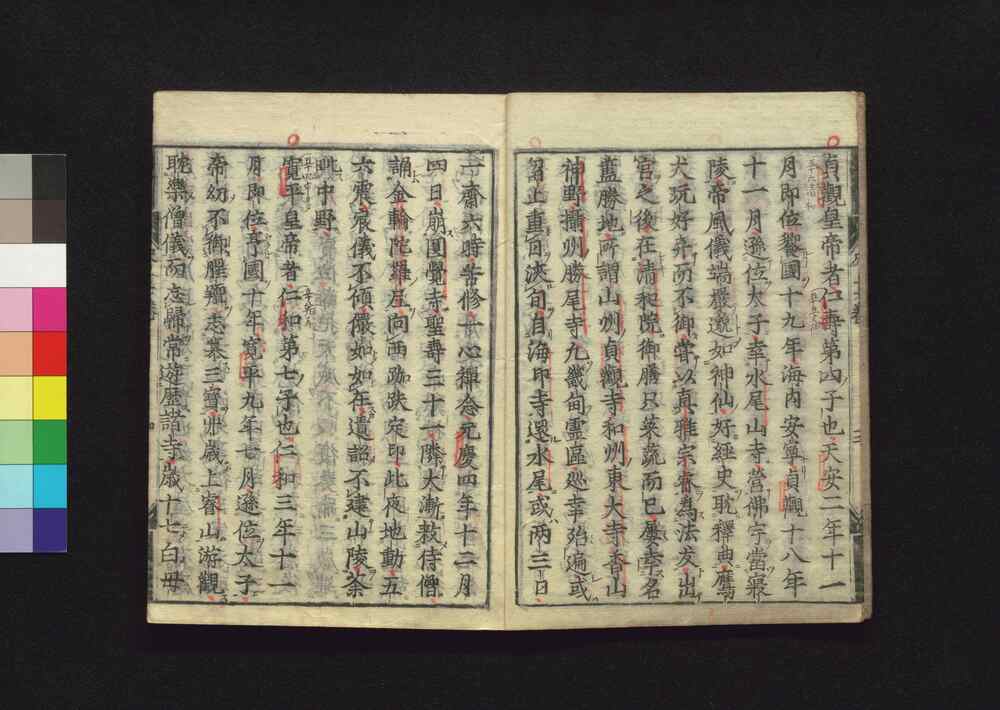 貞觀皇帝者仁壽第四子也天安二年十一
月即位饗國十九年海内安寧貞觀十八年
十一月遜位太子幸水尾山寺營佛宇當寢
陵帝風儀端嚴邈如神仙好經史耽釋典鷹
犬玩好弃而不御常以真雅宗叡爲法友出
宮之後在清和院御膳只菜蔬而已屢幸名
藍勝地所謂山州貞觀寺和州東大寺香山
神野攝州勝尾寺凡畿甸靈區巡幸殆遍或
留止直日浹旬自海印寺還水尾或兩三日
一齋六時苦修一心禪念元慶四年十二月
四日崩圓覺寺聖壽三十一隣大漸敕侍僧
誦金輪陀羅尼向西跏趺定印此夜地動五
六震哀儀不傾儼如如在遺詔不建山陵荼
毗中野
寛平皇帝者仁和第七子也仁和三年十一
月即位享國十年寛平九年七月遜位太子
帝幼不御腥羶志慕三寶丱歳上睿山游觀
耽樂僧儀而忘歸常遊歷諸寺歳十七白母